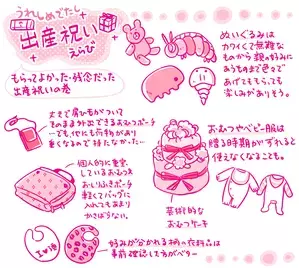 うれしめでたし
出産祝い
えらび
もらってよかった・残念だった
出産祝いの巻
ぬいぐるみは
カワイくて無難な
ものから親の好みに
あうものまで色々で
あげてもらっても
楽しみがありそう。
大きくて肩ひもがついて
そのまま外出できるおむつポーチ
…でも他にも荷物があり
重くなるので持たなかった…
個人的に重宝
しているおむつ&
おしりふきポーチ
軽くてバッグに
入れてもあまり
かさばらない。
芸術的な
おむつケーキ
おむつやベビー服は
贈る時期がずれると
使えなくなることも。
I♥湯
好みが分かれる柄の衣料品は
事前確認した方がベター